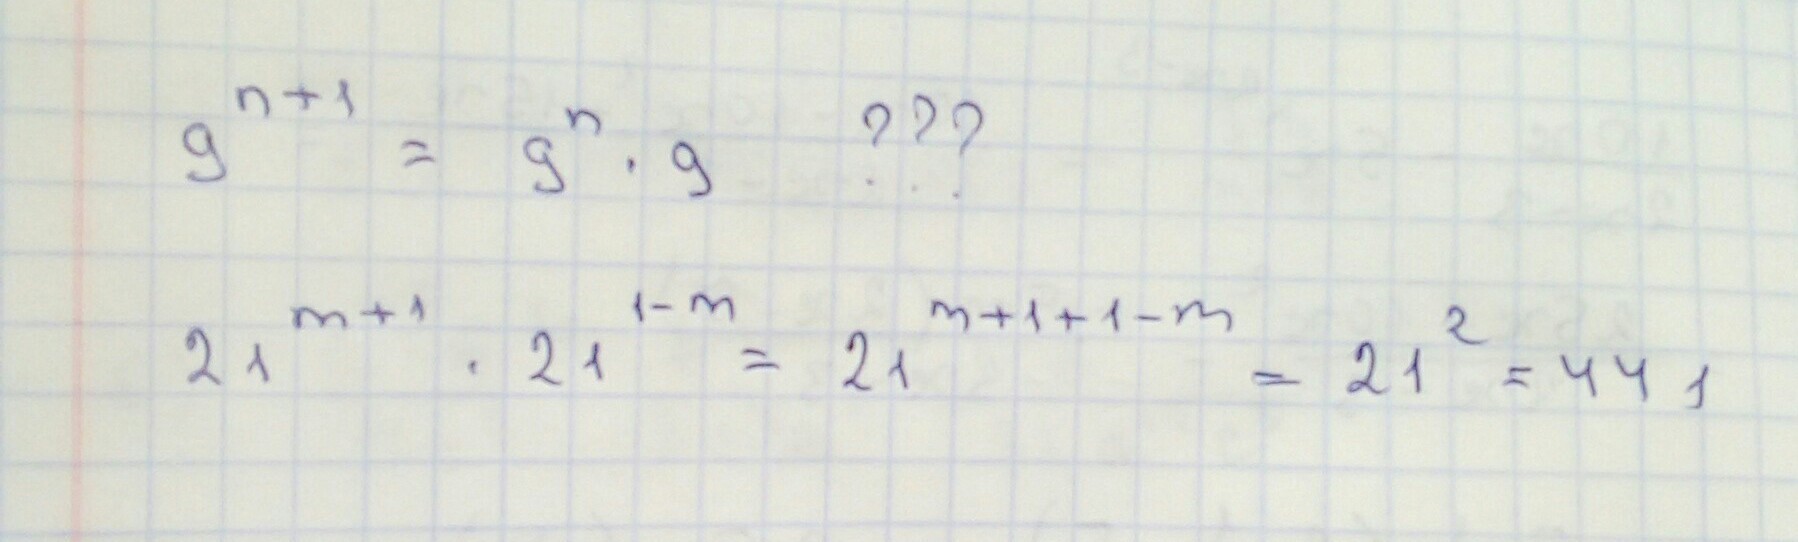 9^{n+1} = 9^n · 9 ???
21^{m+1} · 21^{1-m} = 21^{m+1+1-m} = 21^2 = 441